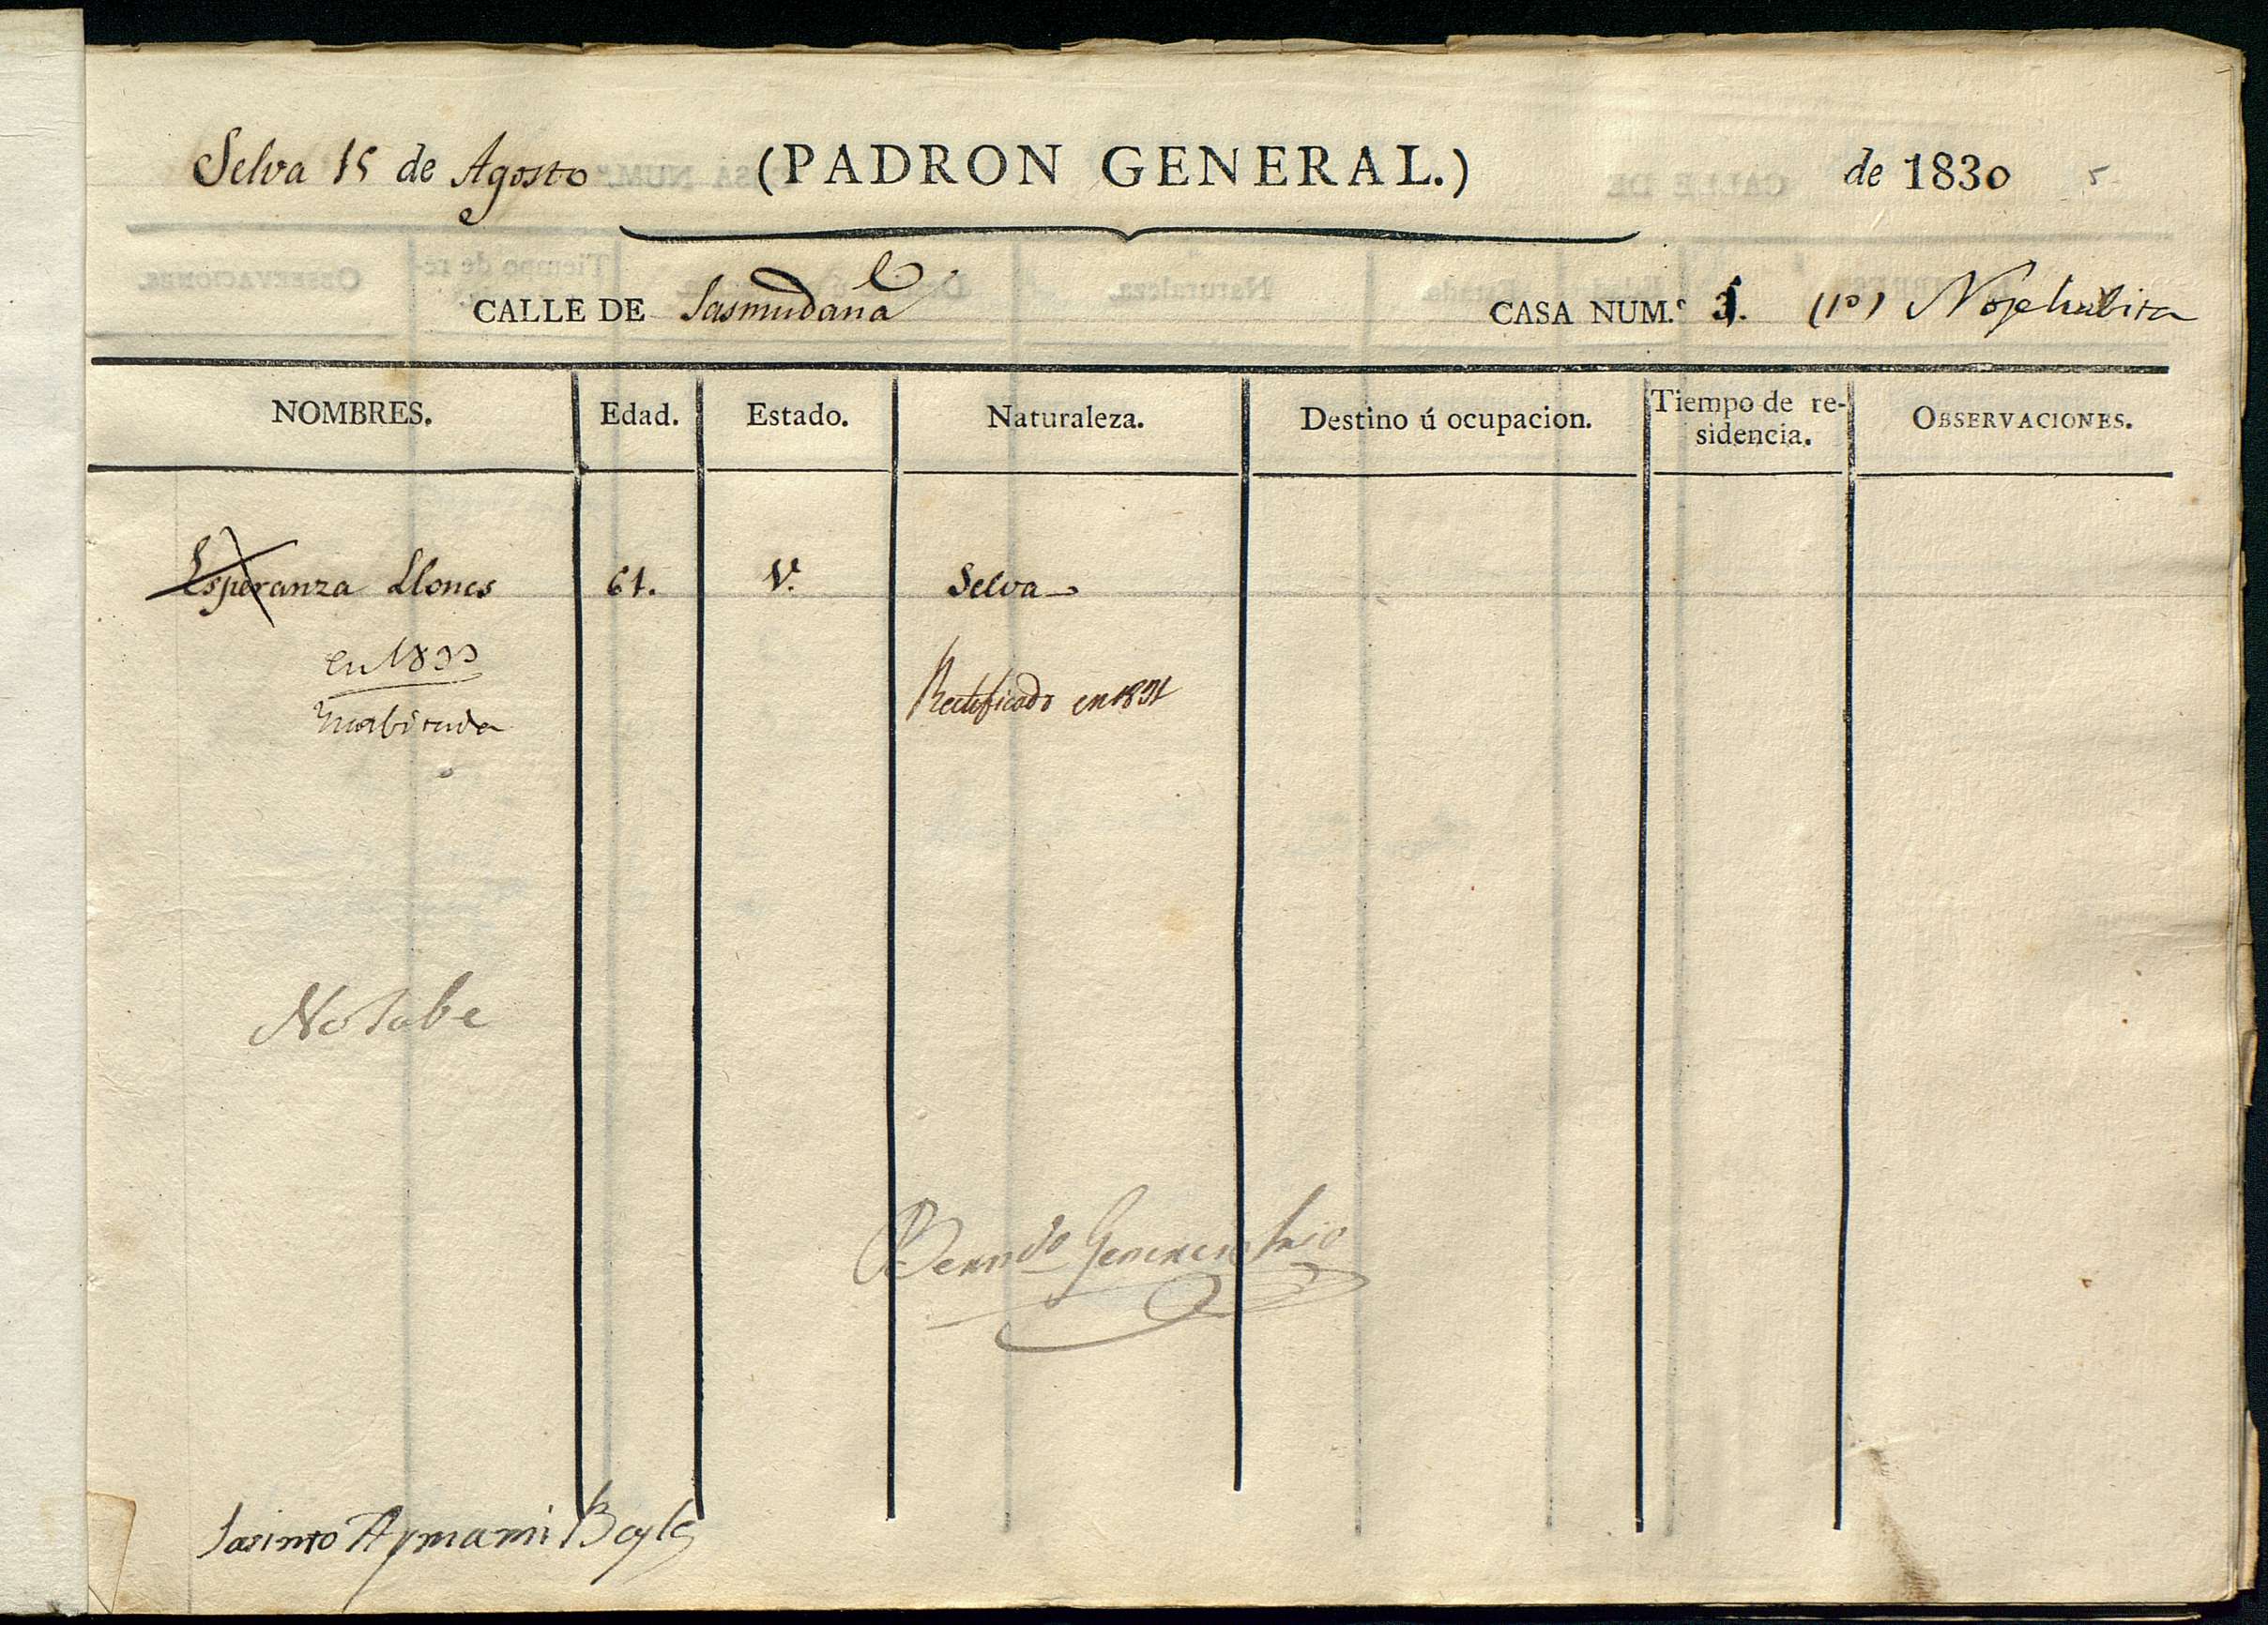 Selva 15 de Agosto (PADRON GENERAL.) de 1830 5
CALLE DE Sasmudana CASA NUM.º (1º) No se habita
NOMBRES. Edad. Estado. Naturaleza. Destino ú ocupacion. Tiempo de re-sidencia. OBSERVACIONES.
Esperanza Llones 61. Vᵃ. Selva
en 1833
Rectificado en 1831
Inabitada
No sabe
Jasinto Aymami Bayle